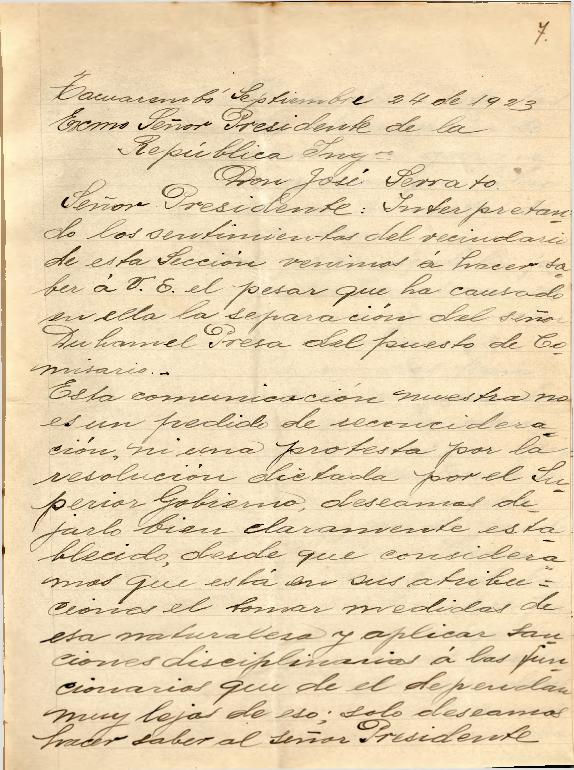 7.
Tacuarembó Septiembre 24 de 1923
Exmo Señor Presidente de la
República Ing.
Don José Serrato.
Señor Presidente: Interpretan-
do los sentimientos del vecindario
de esta Sección venimos á hacer sa
ber á V. E. el pesar que ha causado
en ella la separación del señor
Duhamel Presa del puesto de Co-
misario.-
Esta comunicación nuestra no
es un pedido de reconcidera-
ción, ni una protesta por la
resolución dictada por el Su-
perior Gobierno, deseamos de-
jarlo bien claramente esta
blecido, desde que considera
mos que está en sus atribu-
ciones el tomar medidas de
esa naturaleza y aplicar san-
ciones disciplinarias á los fun-
cionarios que de el dependan
muy lejos de eso; solo deseamos
hacer saber al señor Presidente